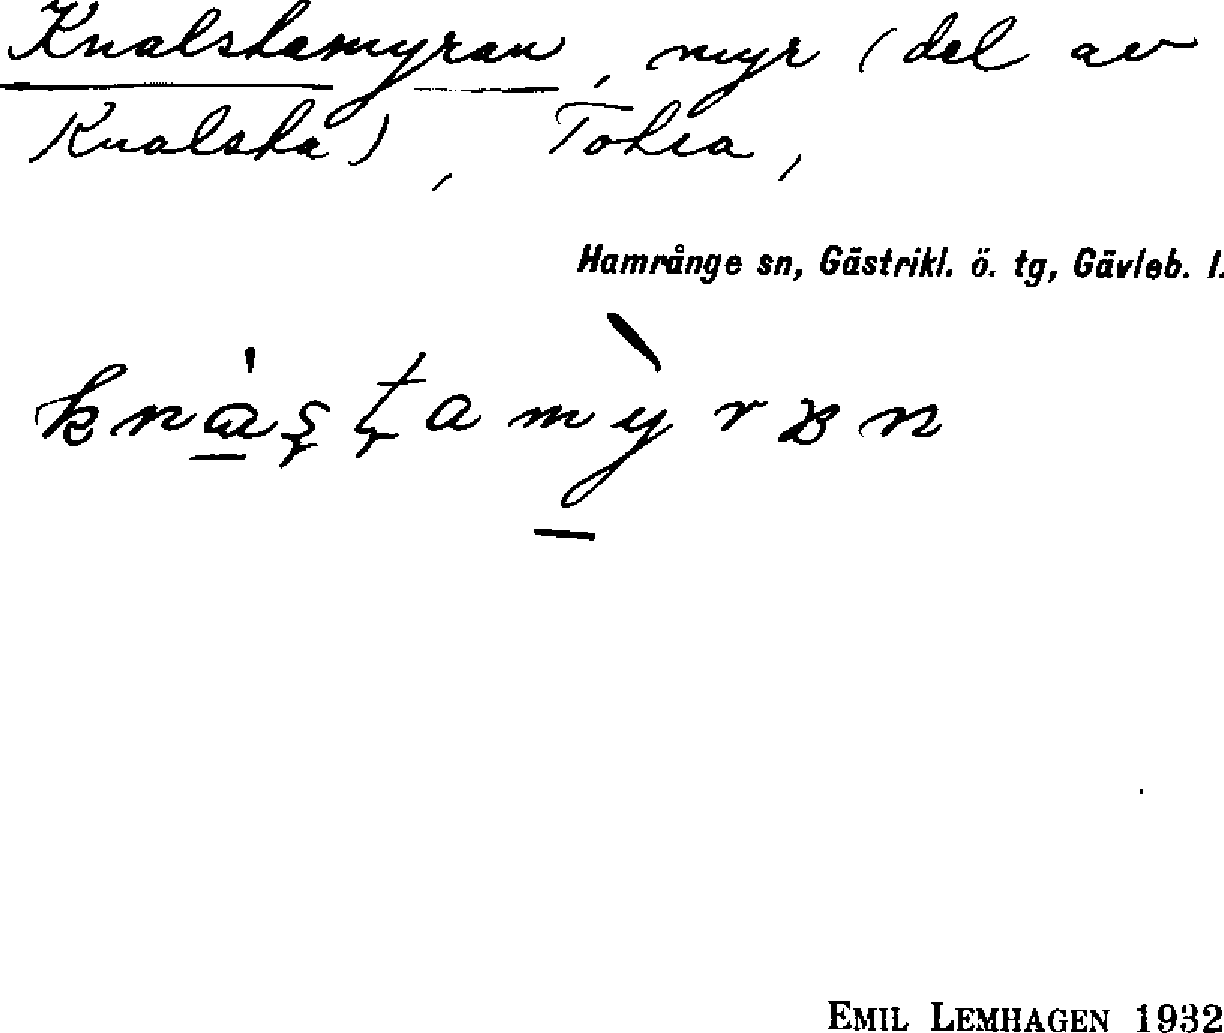 Knalstamyran, myr (del av
Knalsta), Totra,
Hamrånge sn, Gästrikl. ö. tg, Gävleb. l.
EMIL LEMHAGEN 1932